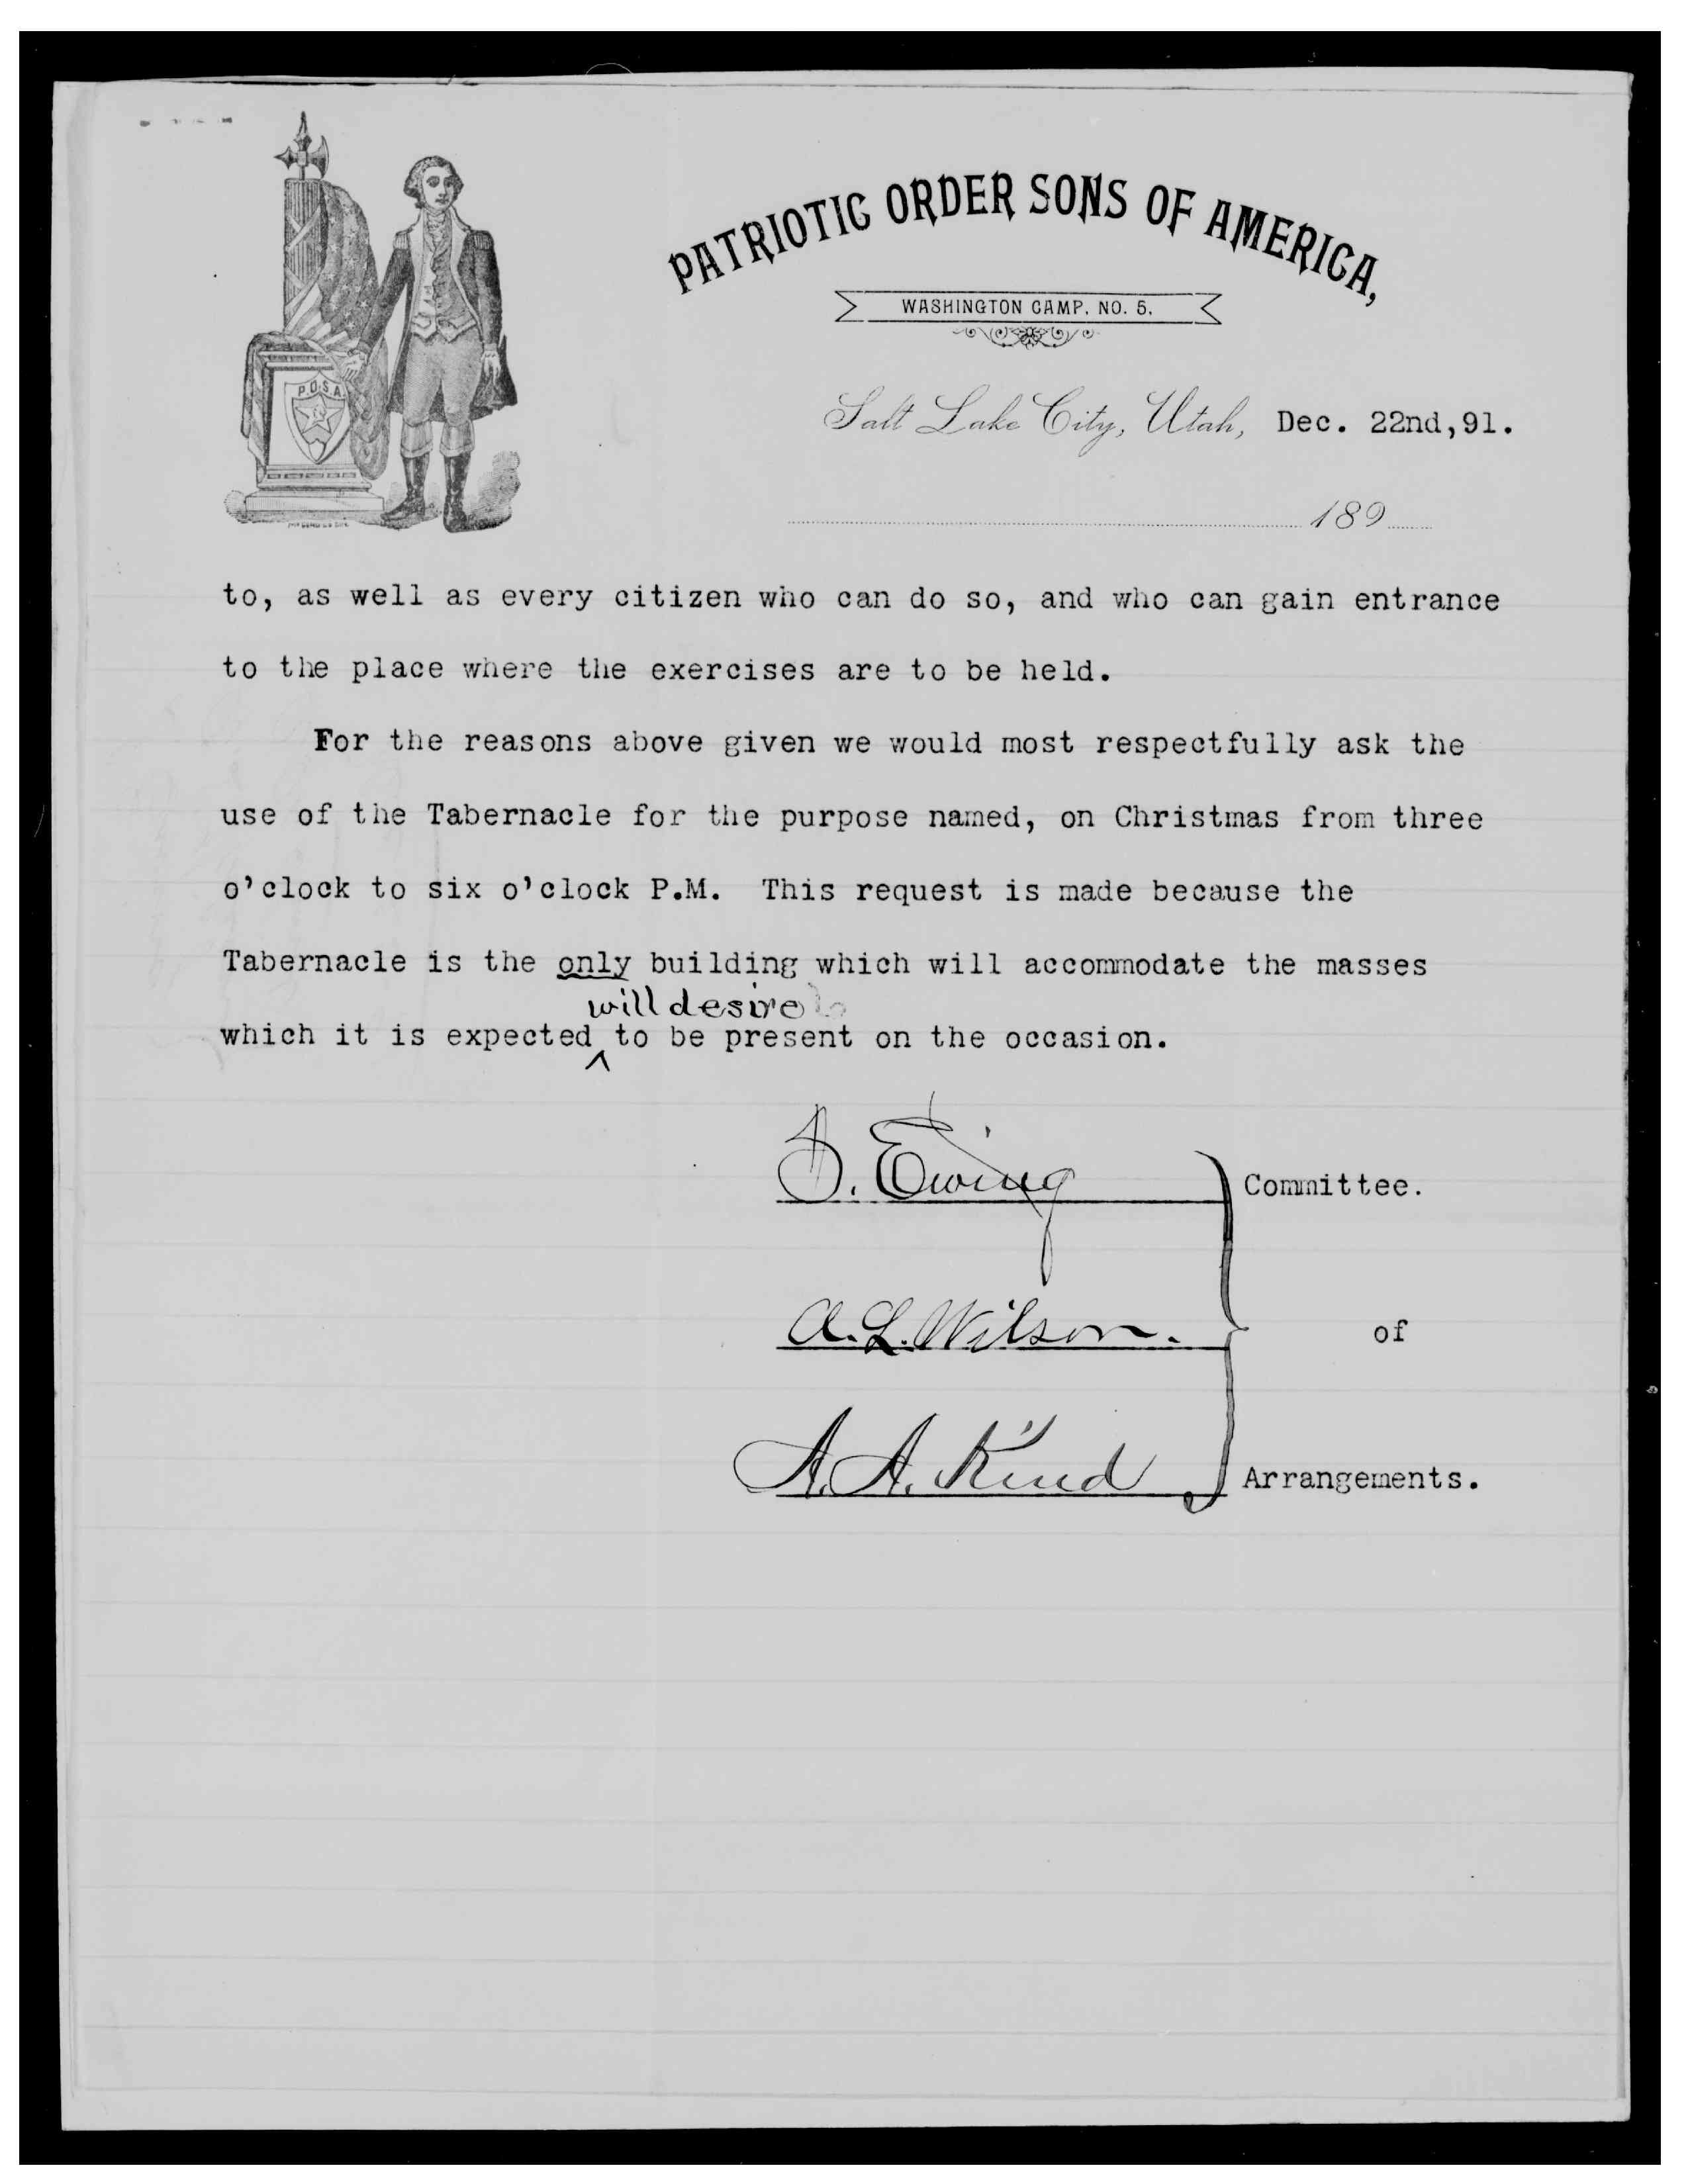 PATRIOTIC ORDER SONS OF AMERICA,
WASHINGTON CAMP. NO. 5.
P.O.S.A.
Salt Lake City, Utah, Dec. 22nd,91.
189
to, as well as every citizen who can do so, and who can gain entrance
to the place where the exercises are to be held.
For the reasons above given we would most respectfully ask the
use of the Tabernacle for the purpose named, on Christmas from three
o'clock to six o'clock P.M. This request is made because the
Tabernacle is the only building which will accommodate the masses
will desire
which it is expected ^ to be present on the occasion.
Ewing
Committee.
A.L. Wilson.
of
A.A. Kind
Arrangements.